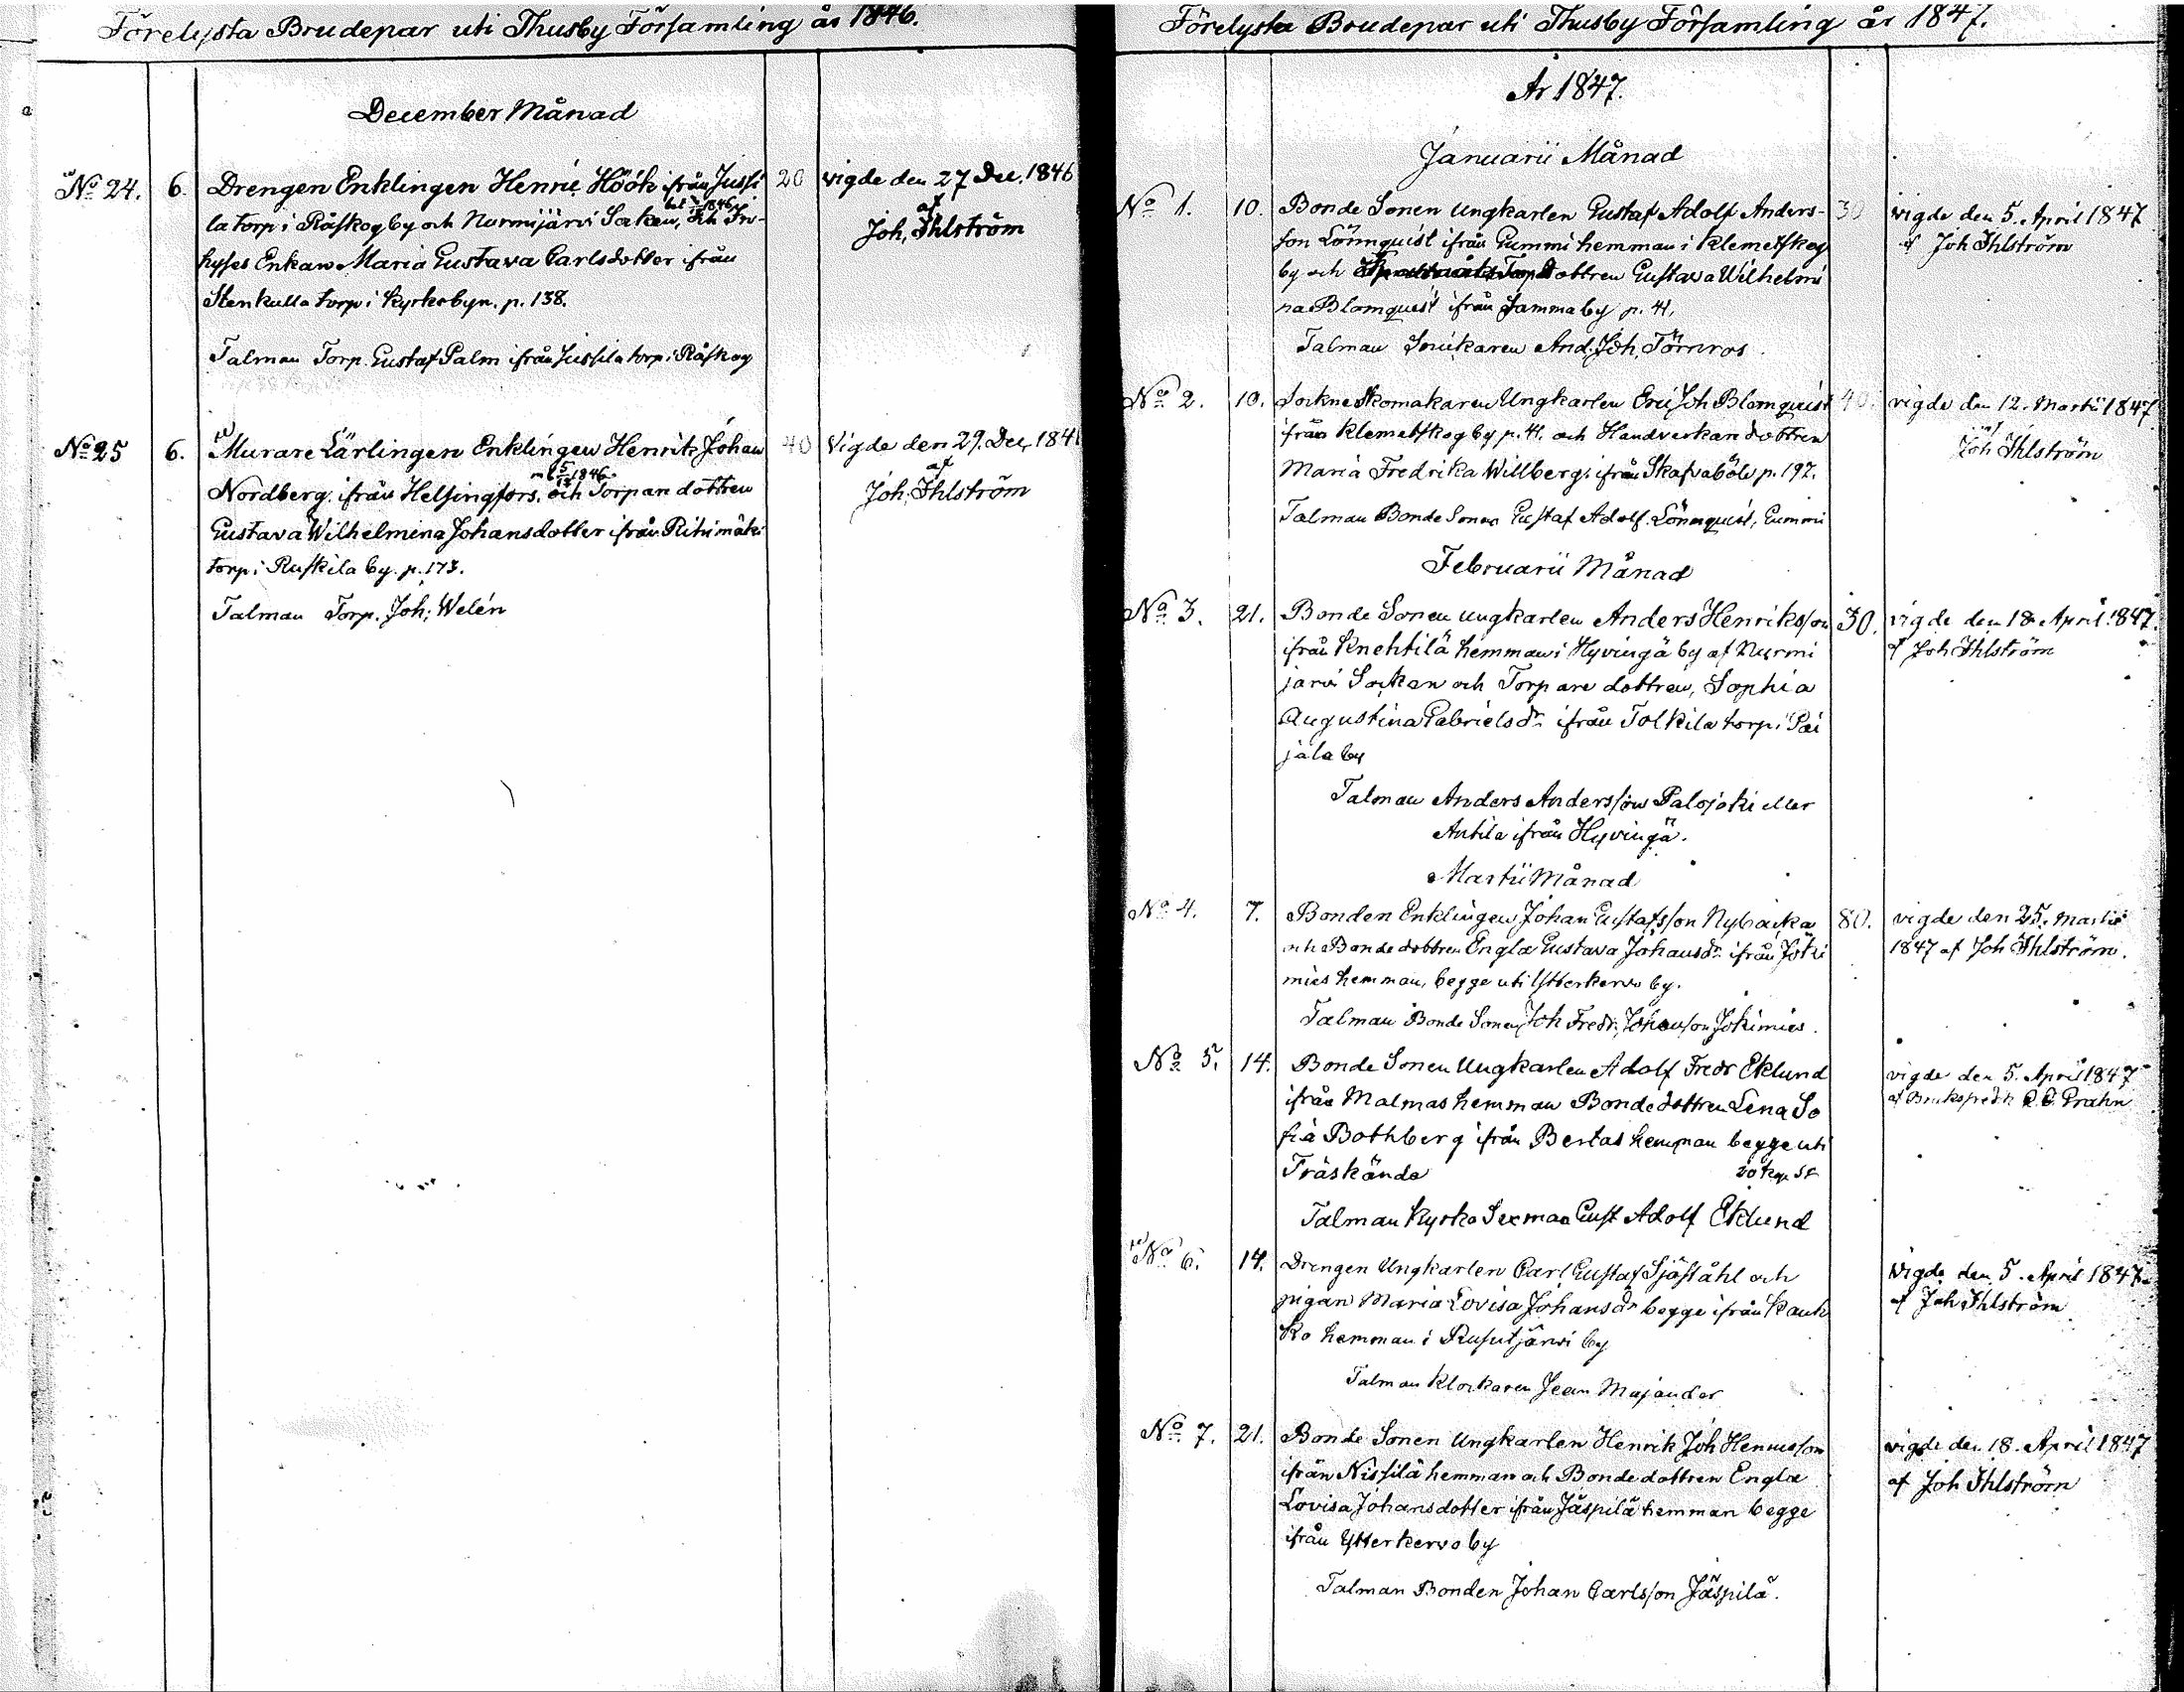 Förelysta Brudepar uti Thusby Församling år 1846.
December Månad
No 24. 6. Drengen Enklingen Henric Höök ifrån Jussi 20 vigde den 27 Dec. 1846
la torp i Råskog by och Nurmijärvi Socken, och In- af
hyses Enkan Maria Gustava Carlsdotter ifrån Joh. Ihlström
Stenkulla torp i Kyrkobyn. p. 138.
Talman Torp. Gustaf Palm ifrån Jussila torp i Råskog
No 25 6. Murare Lärlingen Enklingen Henrik Johan 40 Vigde den 29. Dec. 184
1846 af
Nordberg. ifrån Helsingfors. och Torpan dottren Joh. Ihlström
Gustava Wilhelmina Johansdotter ifrån Rihimäki
torp i Ruskila by. p. 173.
Talman Torp. Joh: Welén
Förelysta Brudepar uti Thusby Församling år 1847.
År 1847.
Januarii Månad
No 1. 10. Bonde Sonen Ungkarlen Gustaf Adolf Anders- 30 vigde den 5. April 1847
son Lönnquist ifrån Gummi hemman i Klemetskog af Joh Ihlström
by och dottren Gustava Wilhelmi
na Blomquist ifrån samma by p. 41.
Talman Snickaren And. Joh. Törnros.
No 2. 10. Sockne Skomakaren Ungkarlen Eric Joh Blomquist 40. vigde den 12. Martii 1847
ifrån Klemetskog by p. 41. och Handverkare dottren af
Maria Fredrika Willberg. ifrån Skafvaböle p. 197. Joh Ihlström
Talman Bonde Sonen Gustaf Adolf Lönnquist, Gummi
Februarii Månad
No 3. 21. Bonde Sonen Ungkarlen Anders Henriksson 30. vigde den 18 April 1847.
ifrån Knehtilä hemman i Hyvingä by af Nurmi af Joh Ihlström
jarvi Socken och Torpare dottren, Sophia
Augustina Gabriels dr ifrån Tolkila torp i Pai
jala by
Talman Anders Andersson Palojoki eller
Antila ifrån Hyvingä.
Martii Månad
No 4. 7. Bonden Enklingen Johan Gustafsson Nybacka 80. vigde den 25. Martii
och Bondedottren Engla Gustava Johansdr ifrån Joki 1847 af Joh Ihlström.
mies hemman, begge uti Ytterkervo by.
Talman Bonde Sonen Joh Fredr. Johansson Jokimies.
No 5. 14. Bonde Sonen Ungkarlen Adolf Fredr Eklund vigde den 5. April 1847
ifrån Malmas hemman Bonde dottren Lena So af Brukspredk Grahn
fia Bothberg ifrån Bertas hemman begge uti
Träskända 20 kop Sr
Talman Kyrko Sexman Gust Adolf Eklund
No 6. 14. Drengen Ungkarlen Carl Gustaf Sjöståhl och Vigde den 5. April 1847.
pigan Maria Lovisa Johansdr begge ifrån Kauk af Joh Ihlström
ko hemman i Rusutjärvi by
Talman Klockaren Jean Majander
No 7. 21. Bonde Sonen Ungkarlen Henrik Joh Henricsson vigde den 18. April 1847
ifrån Nissilä hemman och Bondedottren Engla af Joh Ihlström
Lovisa Johansdotter ifrån Jäspilä hemman begge
ifrån Ytterkervo by
Talman Bonden Johan Carlsson Jäspilä.